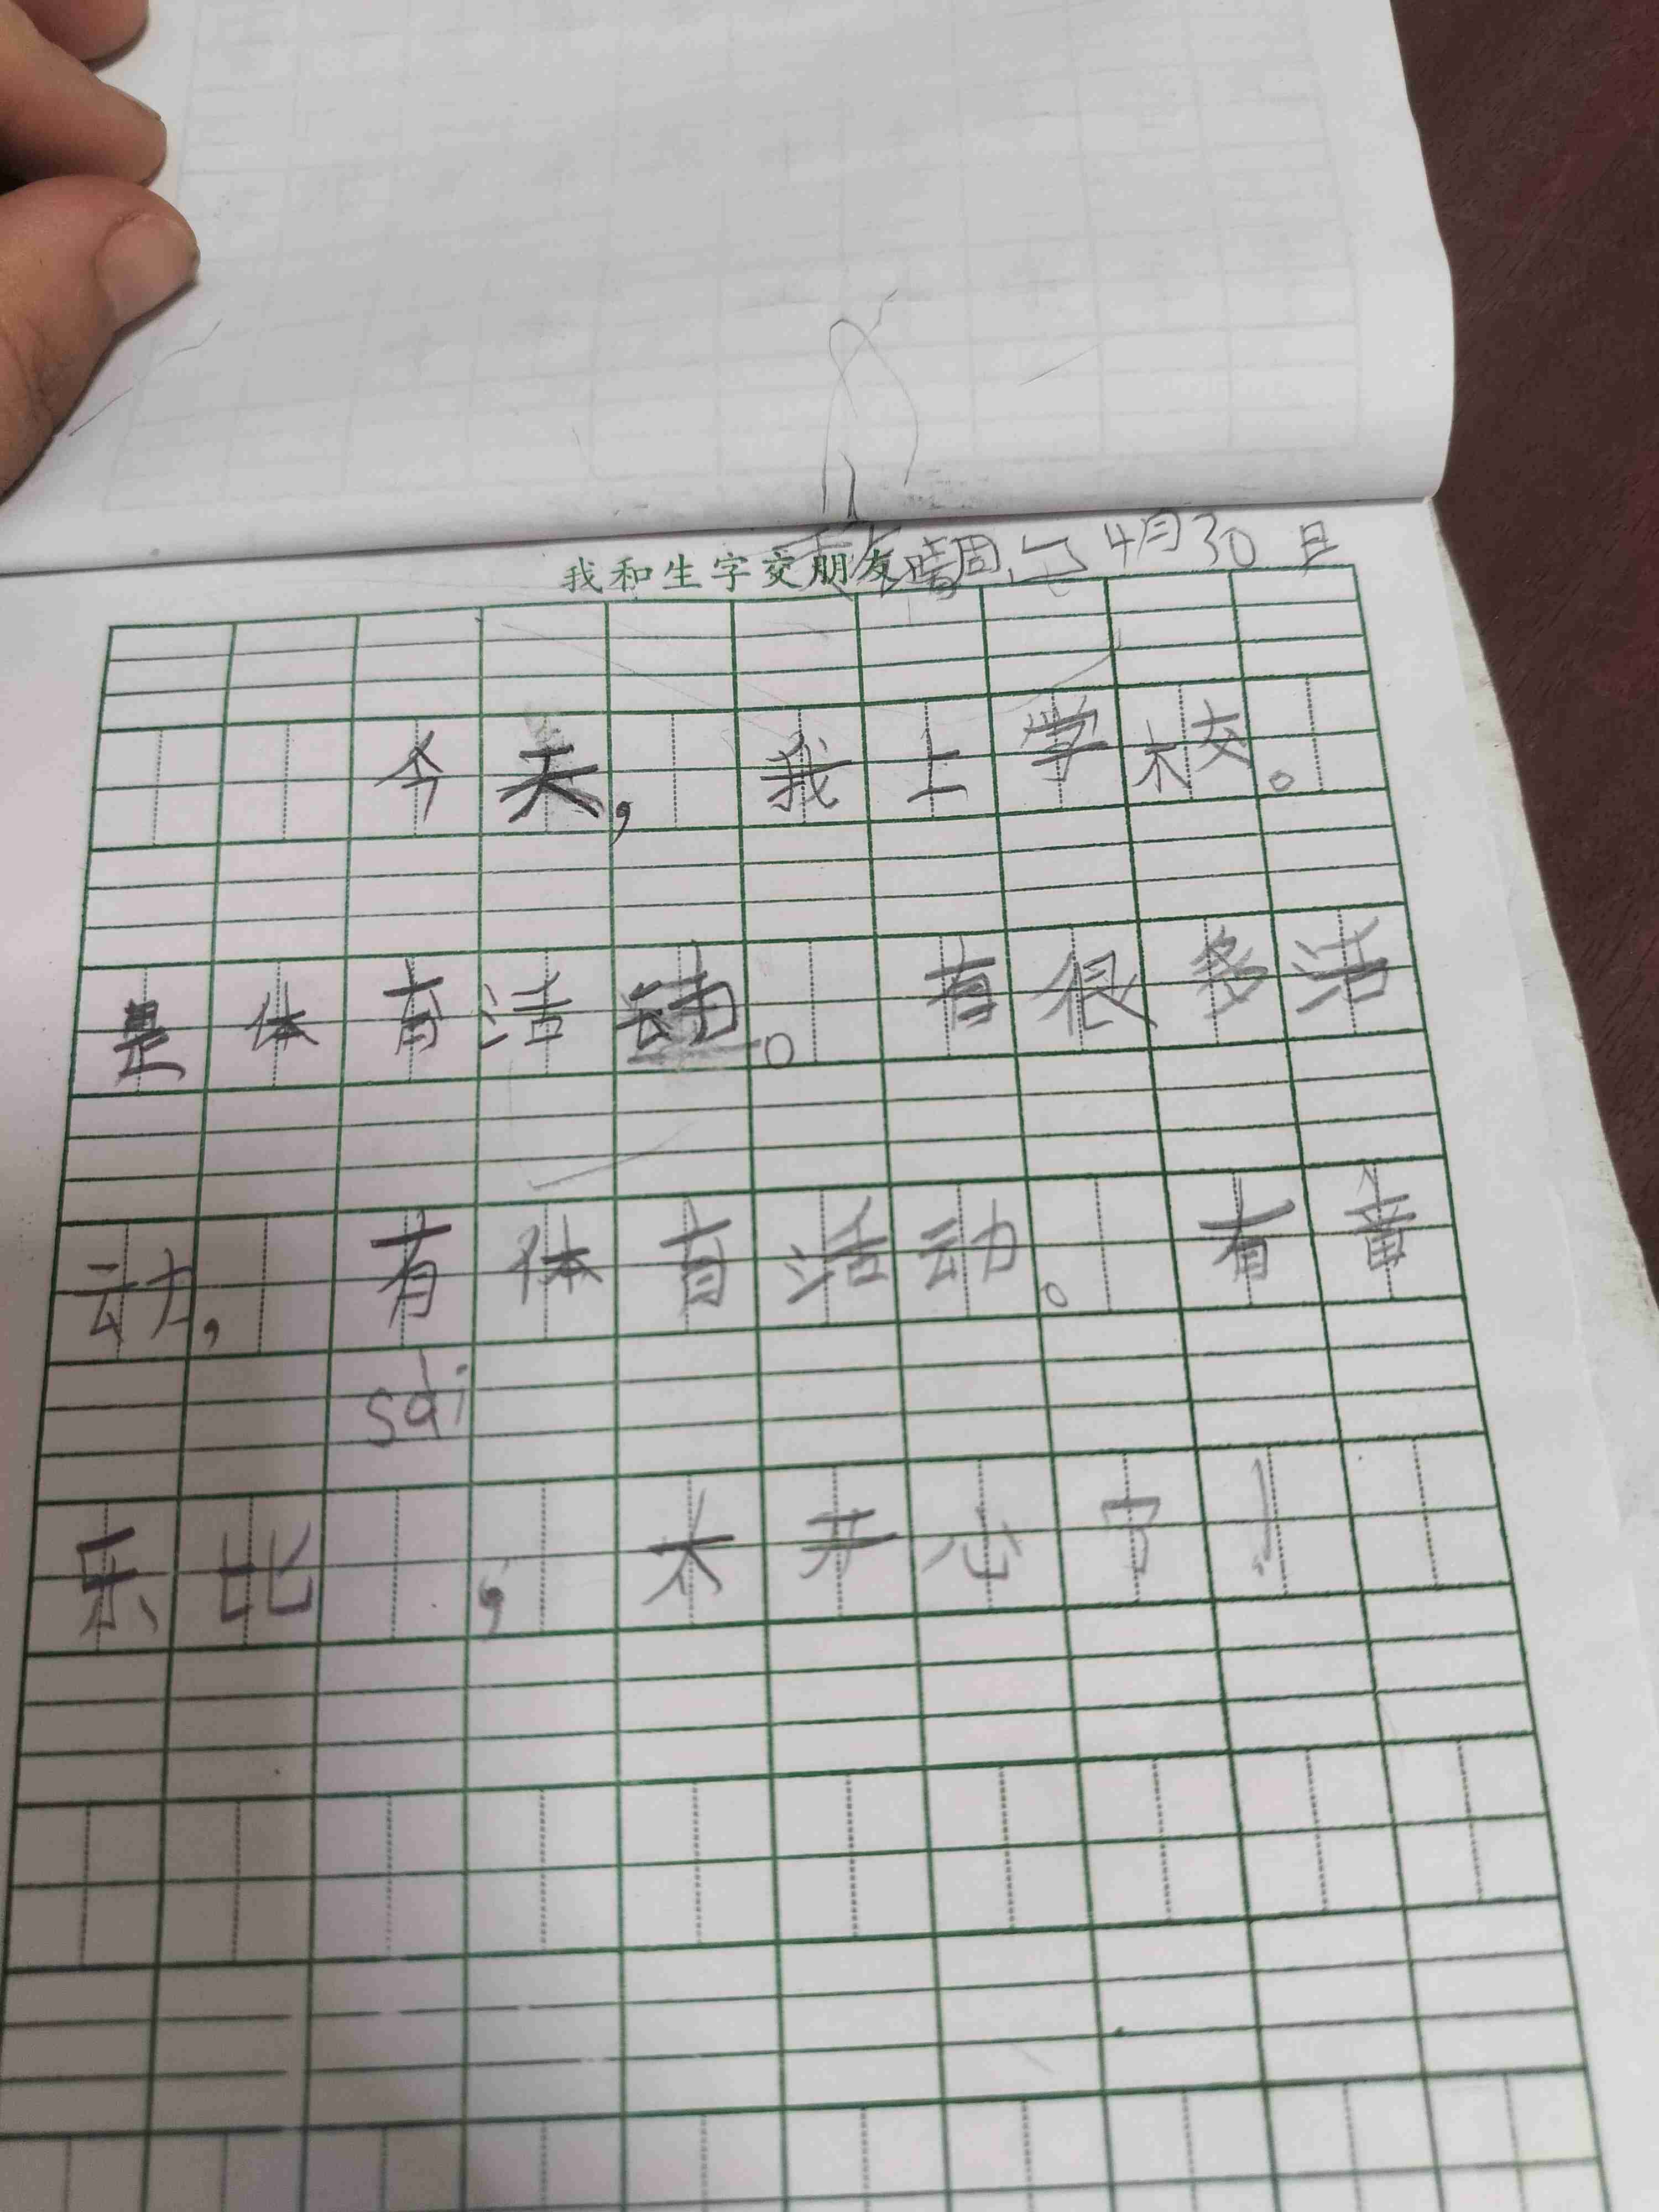 我和生字交朋友 晴周 4月30日
今天,我上学校。
是体育活动。有很多活
动,有体育活动。有音
sài
乐比 ,太开心了!